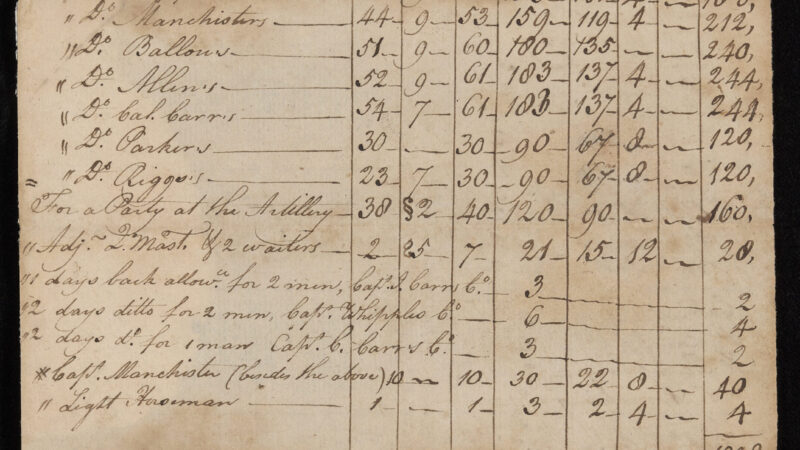 " Dº Manchisters — 44 — 9 — 53 — 159 — 119 — 4 — 212,
" Dº Ballous — 51 — 9 — 60 — 180 — 135 — 240,
" Dº Allens — 52 — 9 — 61 — 183 — 137 — 4 — 244,
" Dº Cal. Carrs — 54 — 7 — 61 — 183 — 137 — 4 — 244,
" Dº Parkers — 30 — 30 — 90 — 67 — 8 — 120,
" Dº Riggs's — 23 — 7 — 30 — 90 — 67 — 8 — 120,
For a Party at the Artillery — 38 2 — 40 — 120 — 90 — 160,
" Adjr. Q. Mast. & 2 waiters — 2 — 5 — 7 — 21 — 15 — 12 — 28,
"1 days back allowce. for 2 men, Capt. J. Carrs Cº — 3 — 2
"2 days ditto for 2 men, Capt. Whipples Cº — 6 — 4
"2 days dº. for 1 man Capt. C. Carrs Cº — 3 — 2
* Capt. Manchister (besides the above) 10 — 10 — 30 — 22 — 8 — 40
" Light Horseman — 1 — 1 — 3 — 2 — 4 — 4